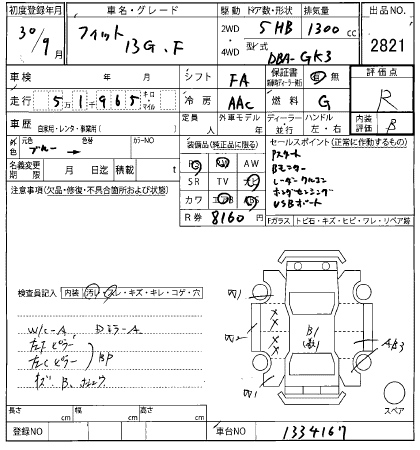 初度登録年月 車名・グレード 駆動 ドア数・形状 排気量 出品NO.
30/9月 フィット 13G.F 2WD 5HB 1300cc 2821
4WD 型式 DBA-GK3
車検 年 月 シフト FA 保証書 有 無 評価点
走行 51965 キロ・マイル 冷房 AAC 燃料 G R
車歴 自家用・レンタ・事業用( ) 定員 人 外車モデル 年 ディーラー・並行 ハンドル 左・右 内装評価 B
外色 元色 ブルー 色替 カラーNO
装備品(純正品に限る) セールスポイント(正常に作動するもの)
名義変更期限 月 日迄 積載 t
PS PW AW
SR TV ナビ
カワ エアB ABS
R券 8160円
Pスタート
Bモニター
レーダークルコン
ホンダセンシング
USBポート
注意事項(欠品・修復・不具合箇所および状態)
Fガラス トビ石・キズ・ヒビ・ワレ・リペア跡
検査員記入 内装 汚レ・スレ・キズ・キレ・コゲ・穴
W/C-A Dミラー-A
左Fピラー
左Cピラー BP
キズ B.
W1
W2
W1
B1
A B3
スペア
長さ cm 幅 cm 高さ cm
登録NO 車台NO 1334167